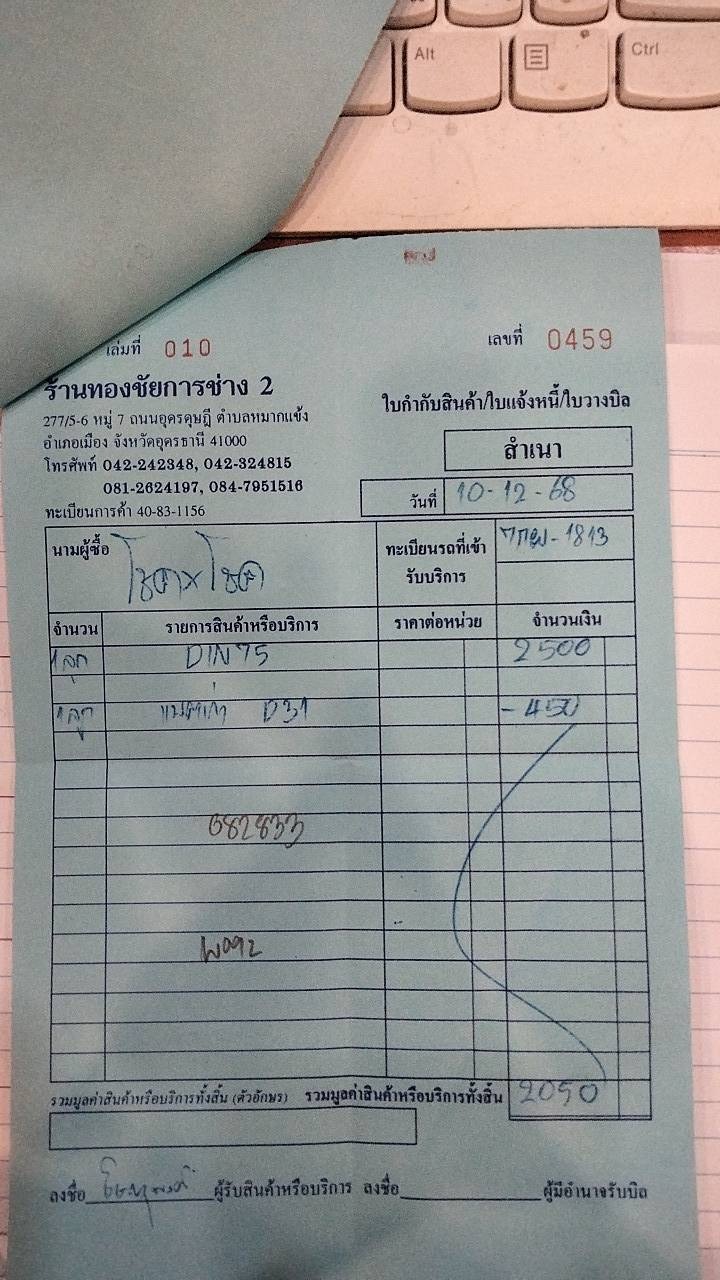 Alt
Ctrl
เล่มที่ 010
เลขที่ 0459
ร้านทองชัยการช่าง 2
277/5-6 หมู่ 7 ถนนอุดรดุษฎี ตำบลหมากแข้ง
อำเภอเมือง จังหวัดอุดรธานี 41000
โทรศัพท์ 042-242348, 042-324815
081-2624197, 084-7951516
ทะเบียนการค้า 40-83-1156
ใบกำกับสินค้า/ใบแจ้งหนี้/ใบวางบิล
สำเนา
วันที่ 10-12-68
นามผู้ซื้อ
ทะเบียนรถที่เข้า
รับบริการ
1813
จำนวน รายการสินค้าหรือบริการ ราคาต่อหน่วย จำนวนเงิน
1 ลูก DIN 75 2500
1 ลูก D31 -450
682833
รวมมูลค่าสินค้าหรือบริการทั้งสิ้น (ตัวอักษร) รวมมูลค่าสินค้าหรือบริการทั้งสิ้น 2050
ลงชื่อ ผู้รับสินค้าหรือบริการ ลงชื่อ ผู้มีอำนาจรับบิล